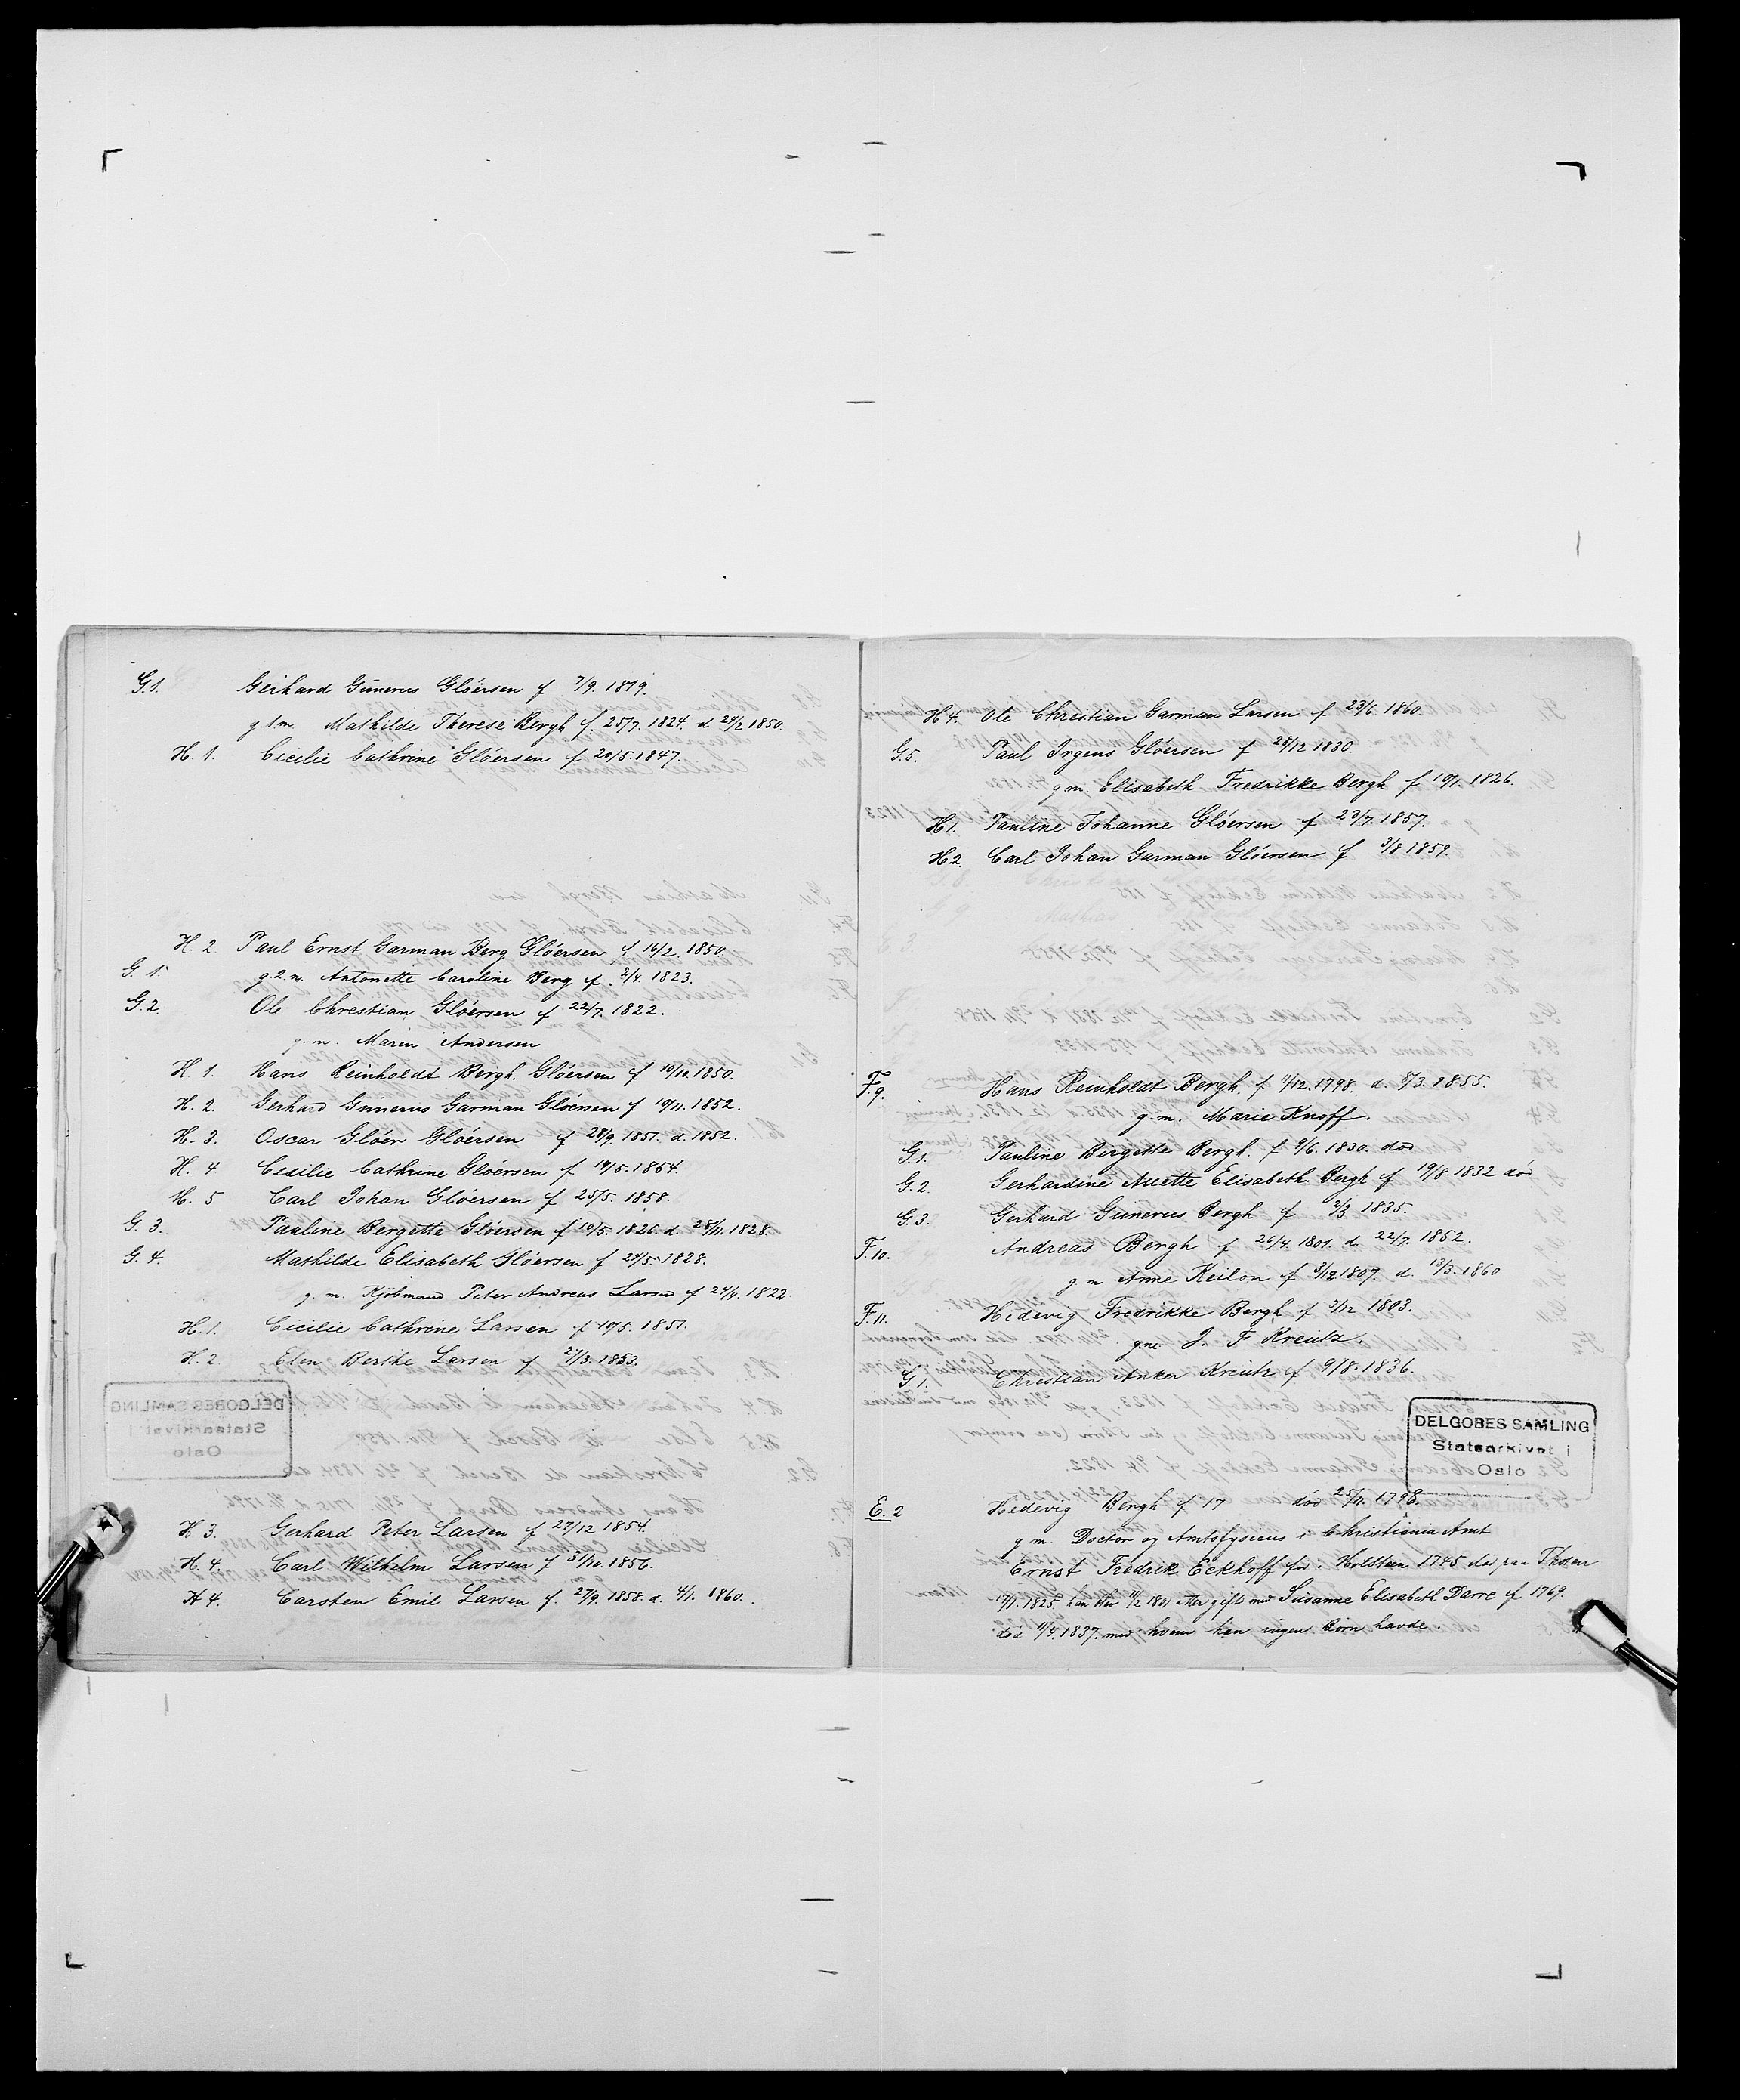 G.1. Gerhard Gunerus Gløersen f 7/9. 1819.
g. 1 m Mathilde Therese Bergh f. 25/7. 1824. d 24/2 1850.
H. 1. Cecilie Cathrine Gløersen f 20/5. 1847.
H. 2 Paul Ernst Garman Berg Gløersen f. 16/2. 1850.
G. 1. g. 2. m. Antonette Caroline Berg f. 2/4. 1823.
G. 2. Ole Chrestian Gløersen f 22/7. 1822.
g. m. Maren Andersen
H. 1. Hans Reinholdt Bergh. Gløersen f 10/10. 1850.
H. 2. Gerhard Gunnerus Garman Gløersen f 10/11. 1852.
H. 3. Oscar Gløer Gløersen f 28/9. 1851. d. 1852.
H. 4 Cecilie Cathrine Gløersen f. 19/5. 1854.
H. 5 Carl Johan Gløersen f 25/5. 1858.
G. 3. Pauline Bergette Gløersen f 10/5. 1826. d. 28/11. 1828.
G. 4. Mathilde Elisabeth Gløersen f 24/5. 1828.
g. m. Kjøbmand Peter Andreas Larsen f 24/4. 1822.
H. 1. Cicilie Cathrine Larsen f 10/5. 1851.
H. 2. Elen Berthe Larsen f 27/3. 1853.
H 3. Gerhard Peter Larsen f 27/12 1854.
H. 4. Carl Wilhelm Larsen f 31/10. 1856.
H 4. Carsten Emil Larsen f. 27/9. 1858. d. 4/1. 1860.
H 4. Ole Chrestian Garman Larsen f 23/6. 1860.
G. 5. Paul Irgens Gløersen f 28/12 1830
g m. Elisabeth Fredrikke Bergh f 10/1. 1826.
H 1. Pauline Johanne Gløersen f 23/7. 1857.
H 2. Carl Johan Garman Gløersen f 3/8 1859.
F. 9. Hans Reinholdt Bergh. f 11/12. 1798. d. 8/3. 1855.
g. m. Marie Knoff.
G. 1. Pauline Birgette Bergh. f 9/6. 1830. død
G. 2. Gerhardine Anette Elisabeth Bergh f 19/8 1832 død
G. 3. Gerhard Gunerus Bergh f 2/3 1835.
F. 10. Andreas Bergh f 26/4. 1801. d. 22/7. 1852.
g m Anne Keilon f 3/12 1807. d. 13/3. 1860
F. 11. Hedevig Fredrikke Bergh f 2/12 1803.
g m J. F Kreutz.
G 1. Christian Anker Kreutz f 9/8. 1836.
DELGOBES SAMLING
Statsarkivet i
Oslo
E. 2 Hedevig Bergh f 17 død 25/11. 1798.
g m. Doctor og Amtsfysicus i Christiania Amt
Ernst Fredrik Eckhoff fød i Holsteen 1745 død paa Thosen
17/1. 1825. han blev 11/2 1801 etter gift med Susanne Elisabeth Darre f 1769.
død 11/4. 1837. med hvem han ingen Børn havde.